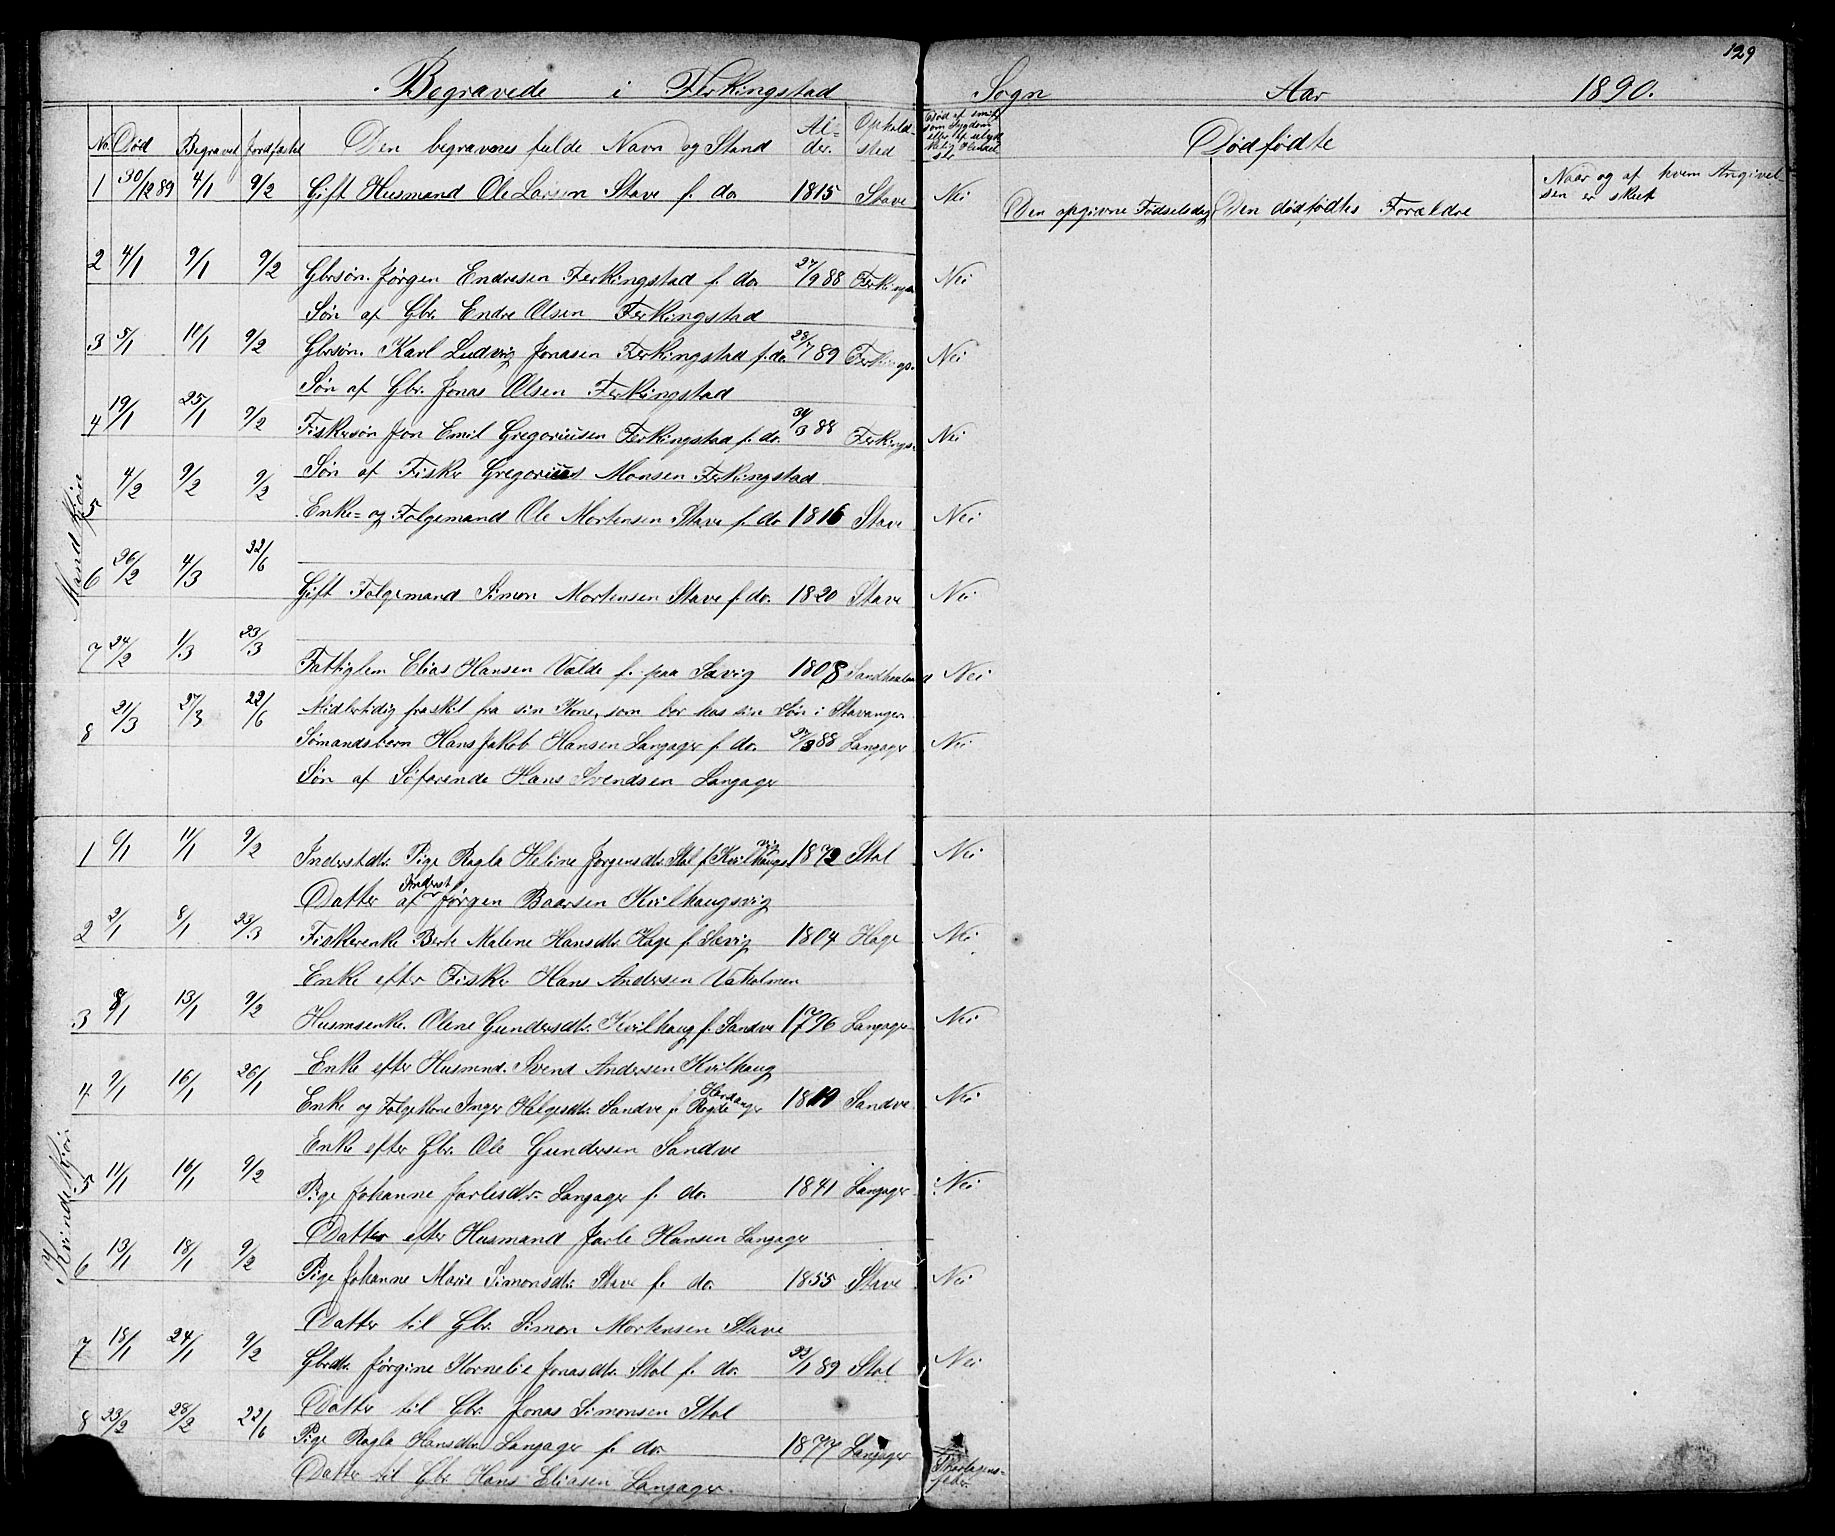 129
Begravede i Ferkingstad Sogn Aar 1890.
No. Død Begravet Jordfæstet Den begravenes fulde Navn og Stand Al- der. Ophold- sted
Død af smit som Sygdom eller af ulyk kelig Hændel se
Dødfødte
Den opgivne Fødselsdag Den dødfødtes Forældre Naar og af hvem Angivel- sen er skeet
Mandkjøn
1 30/12 89 4/1 9/2 Gift Husmand Ole Larsen Stave f. do. 1815 Stave Nei
2 4/1 9/1 9/2 Gbrsøn. Jørgen Endresen Ferkingstad f. do. 27/9 88 Ferkings. Nei
Søn af Gbr. Endre Olsen Ferkingstad
3 5/1 11/1 9/2 Gbrsøn. Karl Ludvig Jonasen Ferkingstad f. do. 29/7 89 Ferkings. Nei
Søn af Gbr. Jonas Olsen Ferkingstad
4 19/1 25/1 9/2 Fiskersøn Jon Emil Gregoriussen Ferkingstad f. do. /3 88 Ferkings. Nei
Søn af Fisker Gregorius Monsen Ferkingstad
5 4/2 9/2 9/2 Enke= og Folgemand Ole Mortensen Stave f. do 1816 Stave Nei
6 26/2 4/3 22/6 Gift Folgemand Simon Mortensen Stave f. do. 1820 Stave Nei
7 24/2 1/3 23/3 Fattiglem Elias Hansen Valde f. paa Sævig 1808 Sandhaaland Nei
Midlertidig fraskilt fra sin Kone, som bor hos sin Søn i Stavanger
8 21/3 27/3 22/6 Sømandsbarn Hans Jakob Hansen Langager f. do. 27/3 88 Langager Nei
Søn af Søfarende Hans Svendsen Langager
Kvindekjøn
1 6/1 11/1 9/2 Inderstdtr. Pige Ragla Heline Jørgensdtr. Stol f. Kvilhaugsvig 1872 Stol Nei
Datter af Inderst Jørgen Baarsen Kvilhaugsvig
2 2/1 8/1 23/3 Fiskerenke Berte Malene Hansdtr. Hage f. Sævig 1804 Hage Nei
Enke efter Fisker Hans Andersen Vaholmen
3 8/1 13/1 9/2 Husmsenke. Olene Gundersdtr. Kvilhaug f. Sandve 1796 Langager Nei
Enke efter Husmnd. Svend Andersen Kvilhaug
4 9/1 16/1 26/1 Enke og Folgekone Inger Helgesdtr. Sandve f. i Hardanger 1819 Sandve Nei
Enke efter Gbr. Ole Gundersen Sandve
5 11/1 16/1 9/2 Pige Johanne Jarlesdtr. Langager f. do. 1841 Langager Nei
Datter efter Husmand Jarle Hansen Langager
6 13/1 18/1 9/2 Pige Johanne Marie Simonsdtr. Stave f. do. 1855 Stave Nei
Datter til Gbr. Simon Mortensen Stave
7 18/1 24/1 9/2 Gbrdtr. Jørgine Kornelie Jonasdtr. Stol f. do. /1 89 Stol Nei
Datter til Gbr. Jonas Simonsen Stol
8 23/2 28/2 22/6 Pige Ragla Hansdtr. Langager f. do. 1877 Langager Skarlagens- feber.
Datter til Gbr Hans Eliasen Langager.